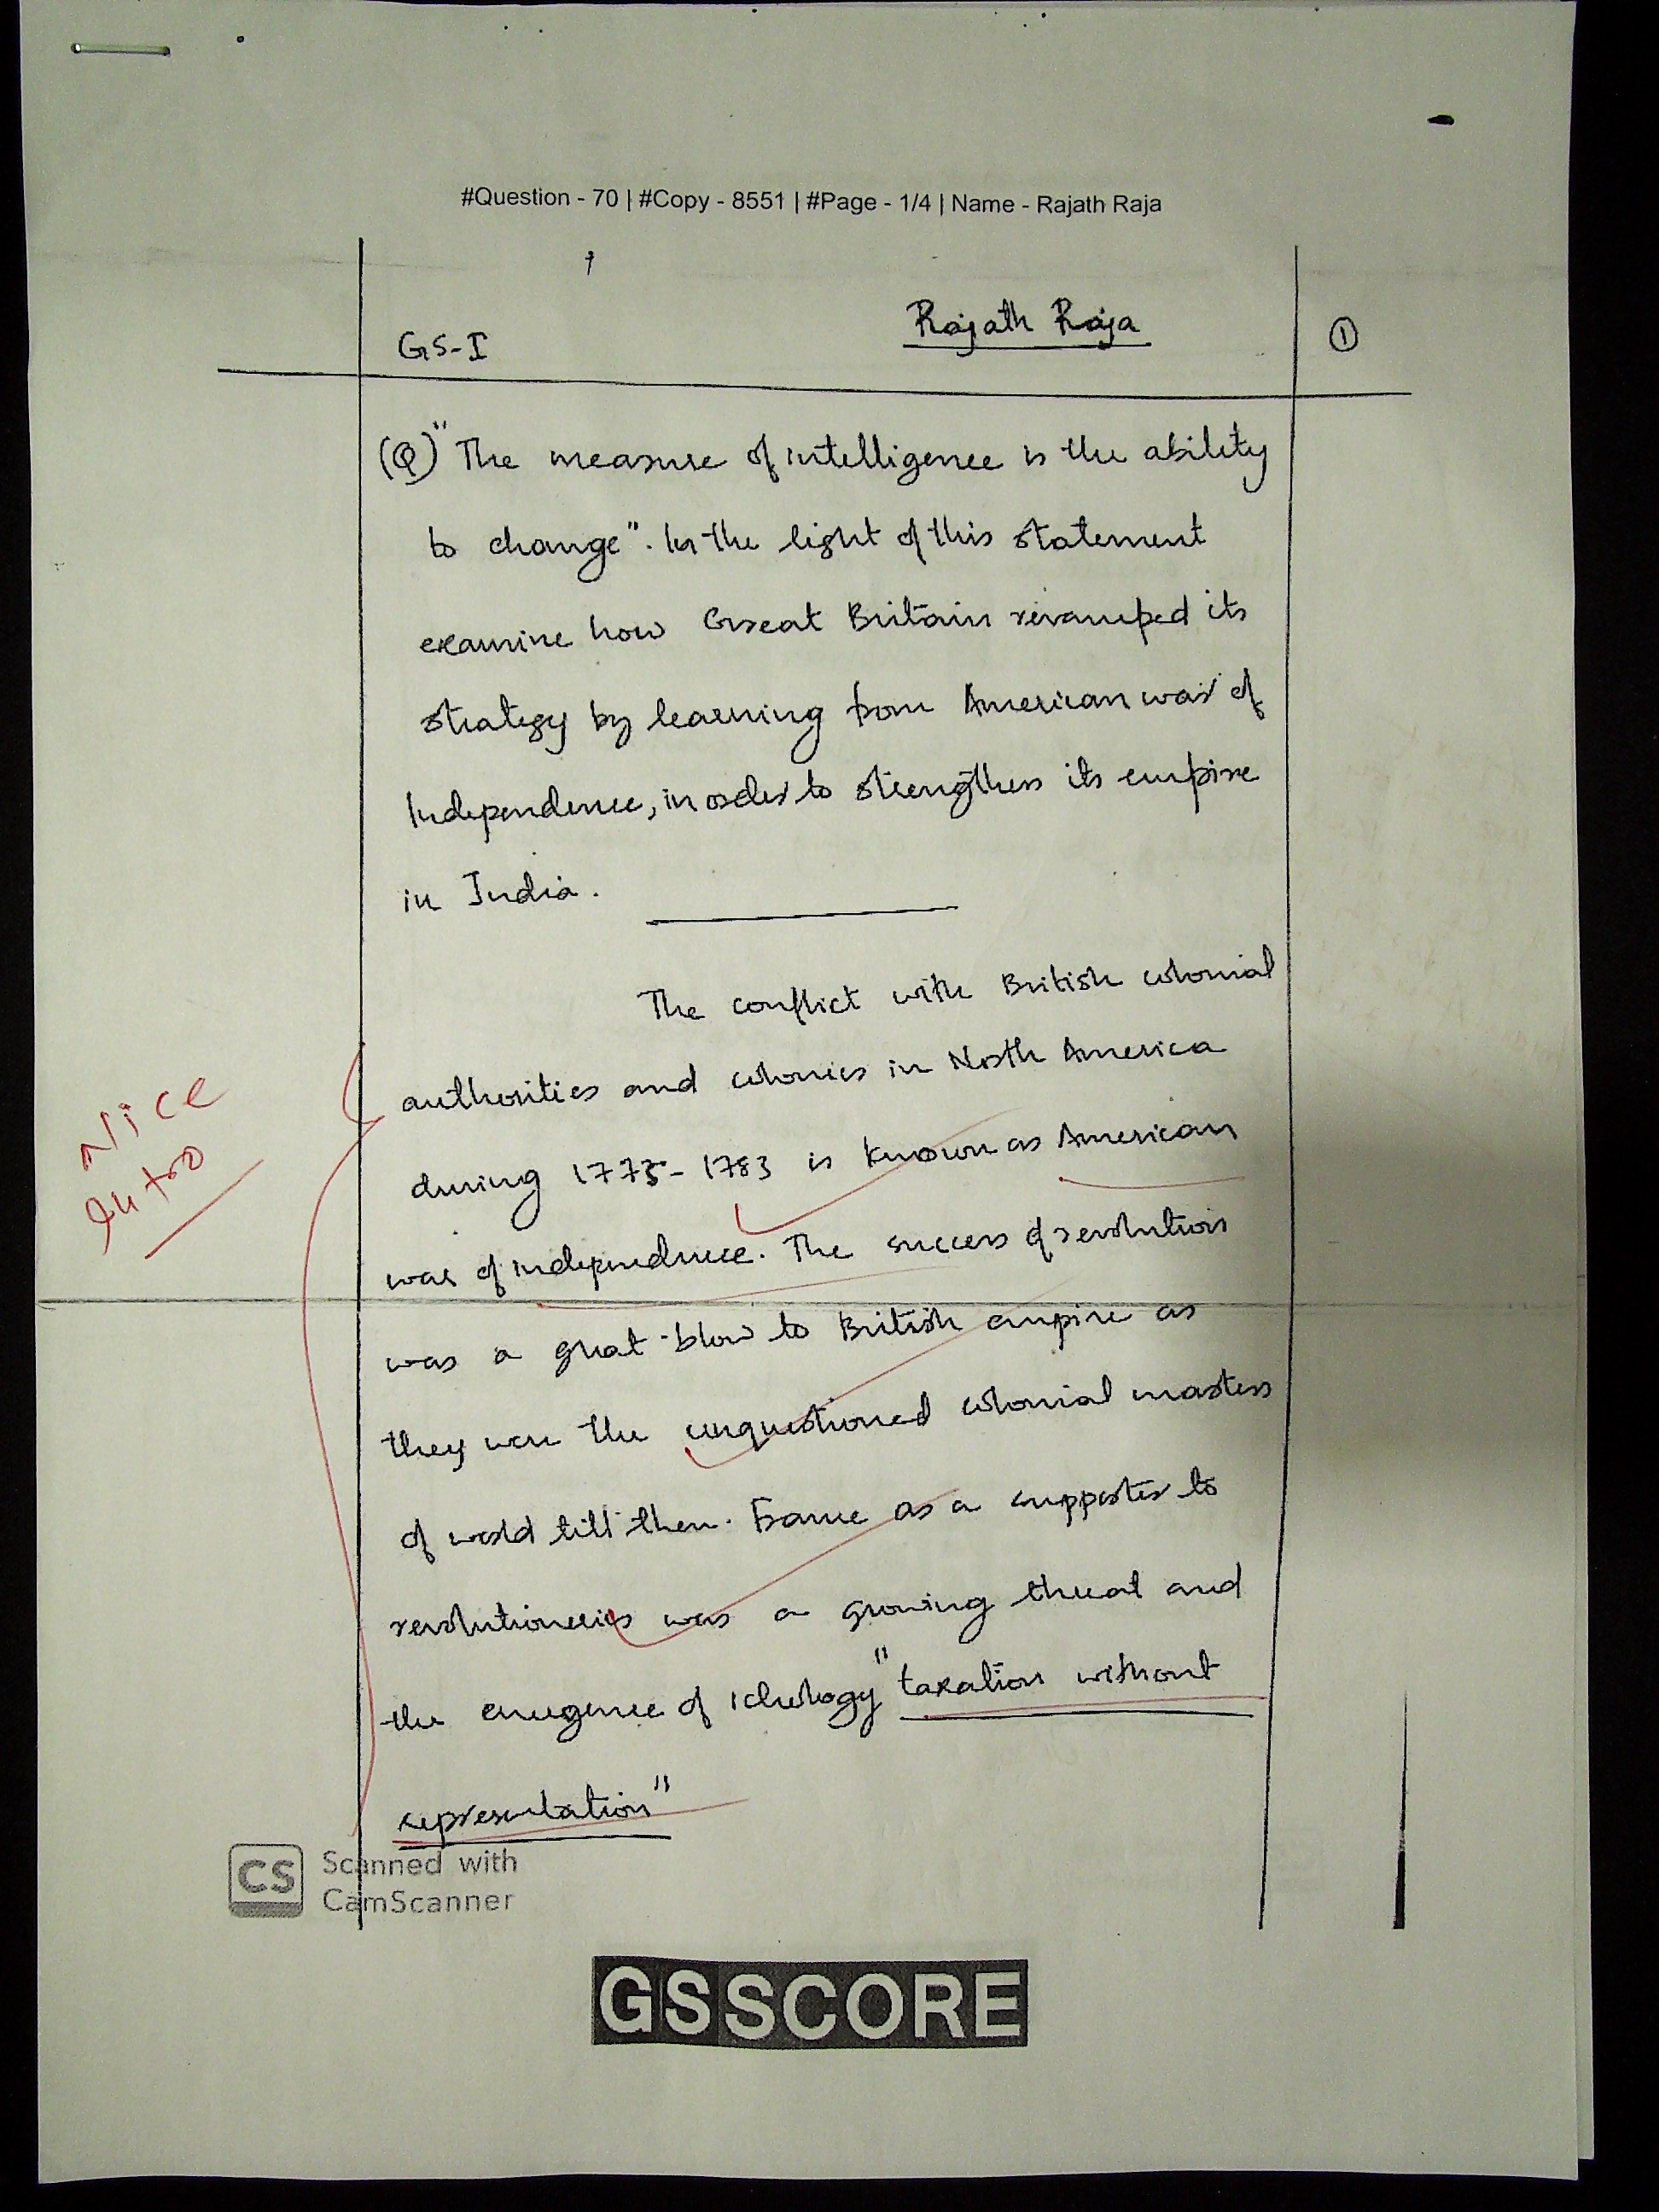 #Question - 70 | #Copy - 8551 | #Page - 1/4 | Name - Rajath Raja
GS-I
Rajath Raja
1
(Q) "The measure of intelligence is the ability
to change". In the light of this statement
examine how Great Britain revamped its
strategy by learning from American war of
Independence, in order to strengthen its empire
in India.
The conflict with British colonial
authorities and colonies in North America
during 1775-1783 is known as American
war of independence. The success of revolution
was a great blow to British empire as
they were the unquestioned colonial masters
of world till then. France as a supporter to
revolutionaries was a growing threat and
the emergence of ideology "taxation without
representation"
Nice
intro
CS Scanned with
CamScanner
GSSCORE